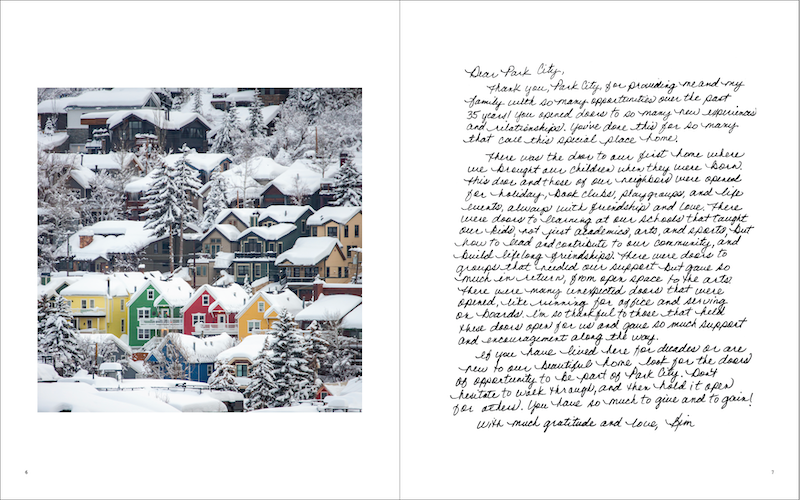 Dear Park City,
Thank you, Park City, for providing me and my
family with so many opportunities over the past
35 years! You opened doors to so many new experiences
and relationships. You've done this for so many
that call this special place home.
There was the door to our first home where
we brought our children when they were born.
This door and those of our neighbors were opened
for holiday, book clubs, playgroups, and life
events, always with friendship and love. There
were doors to learning at our schools that taught
our kids, not just academics, arts, and sports, but
how to lead and contribute to our community, and
build lifelong friendships. There were doors to
groups that needed our support but gave so
much in return, from open space to the arts.
There were many unexpected doors that were
opened, like running for office and serving
on boards. I'm so thankful to those that held
these doors open for us and gave so much support
and encouragement along the way.
If you have lived here for decades or are
new to our beautiful home look for the doors
of opportunity to be part of Park City. Don't
hesitate to walk through, and then hold it open
for others. You have so much to give and to gain!
With much gratitude and love, Kim
6
7